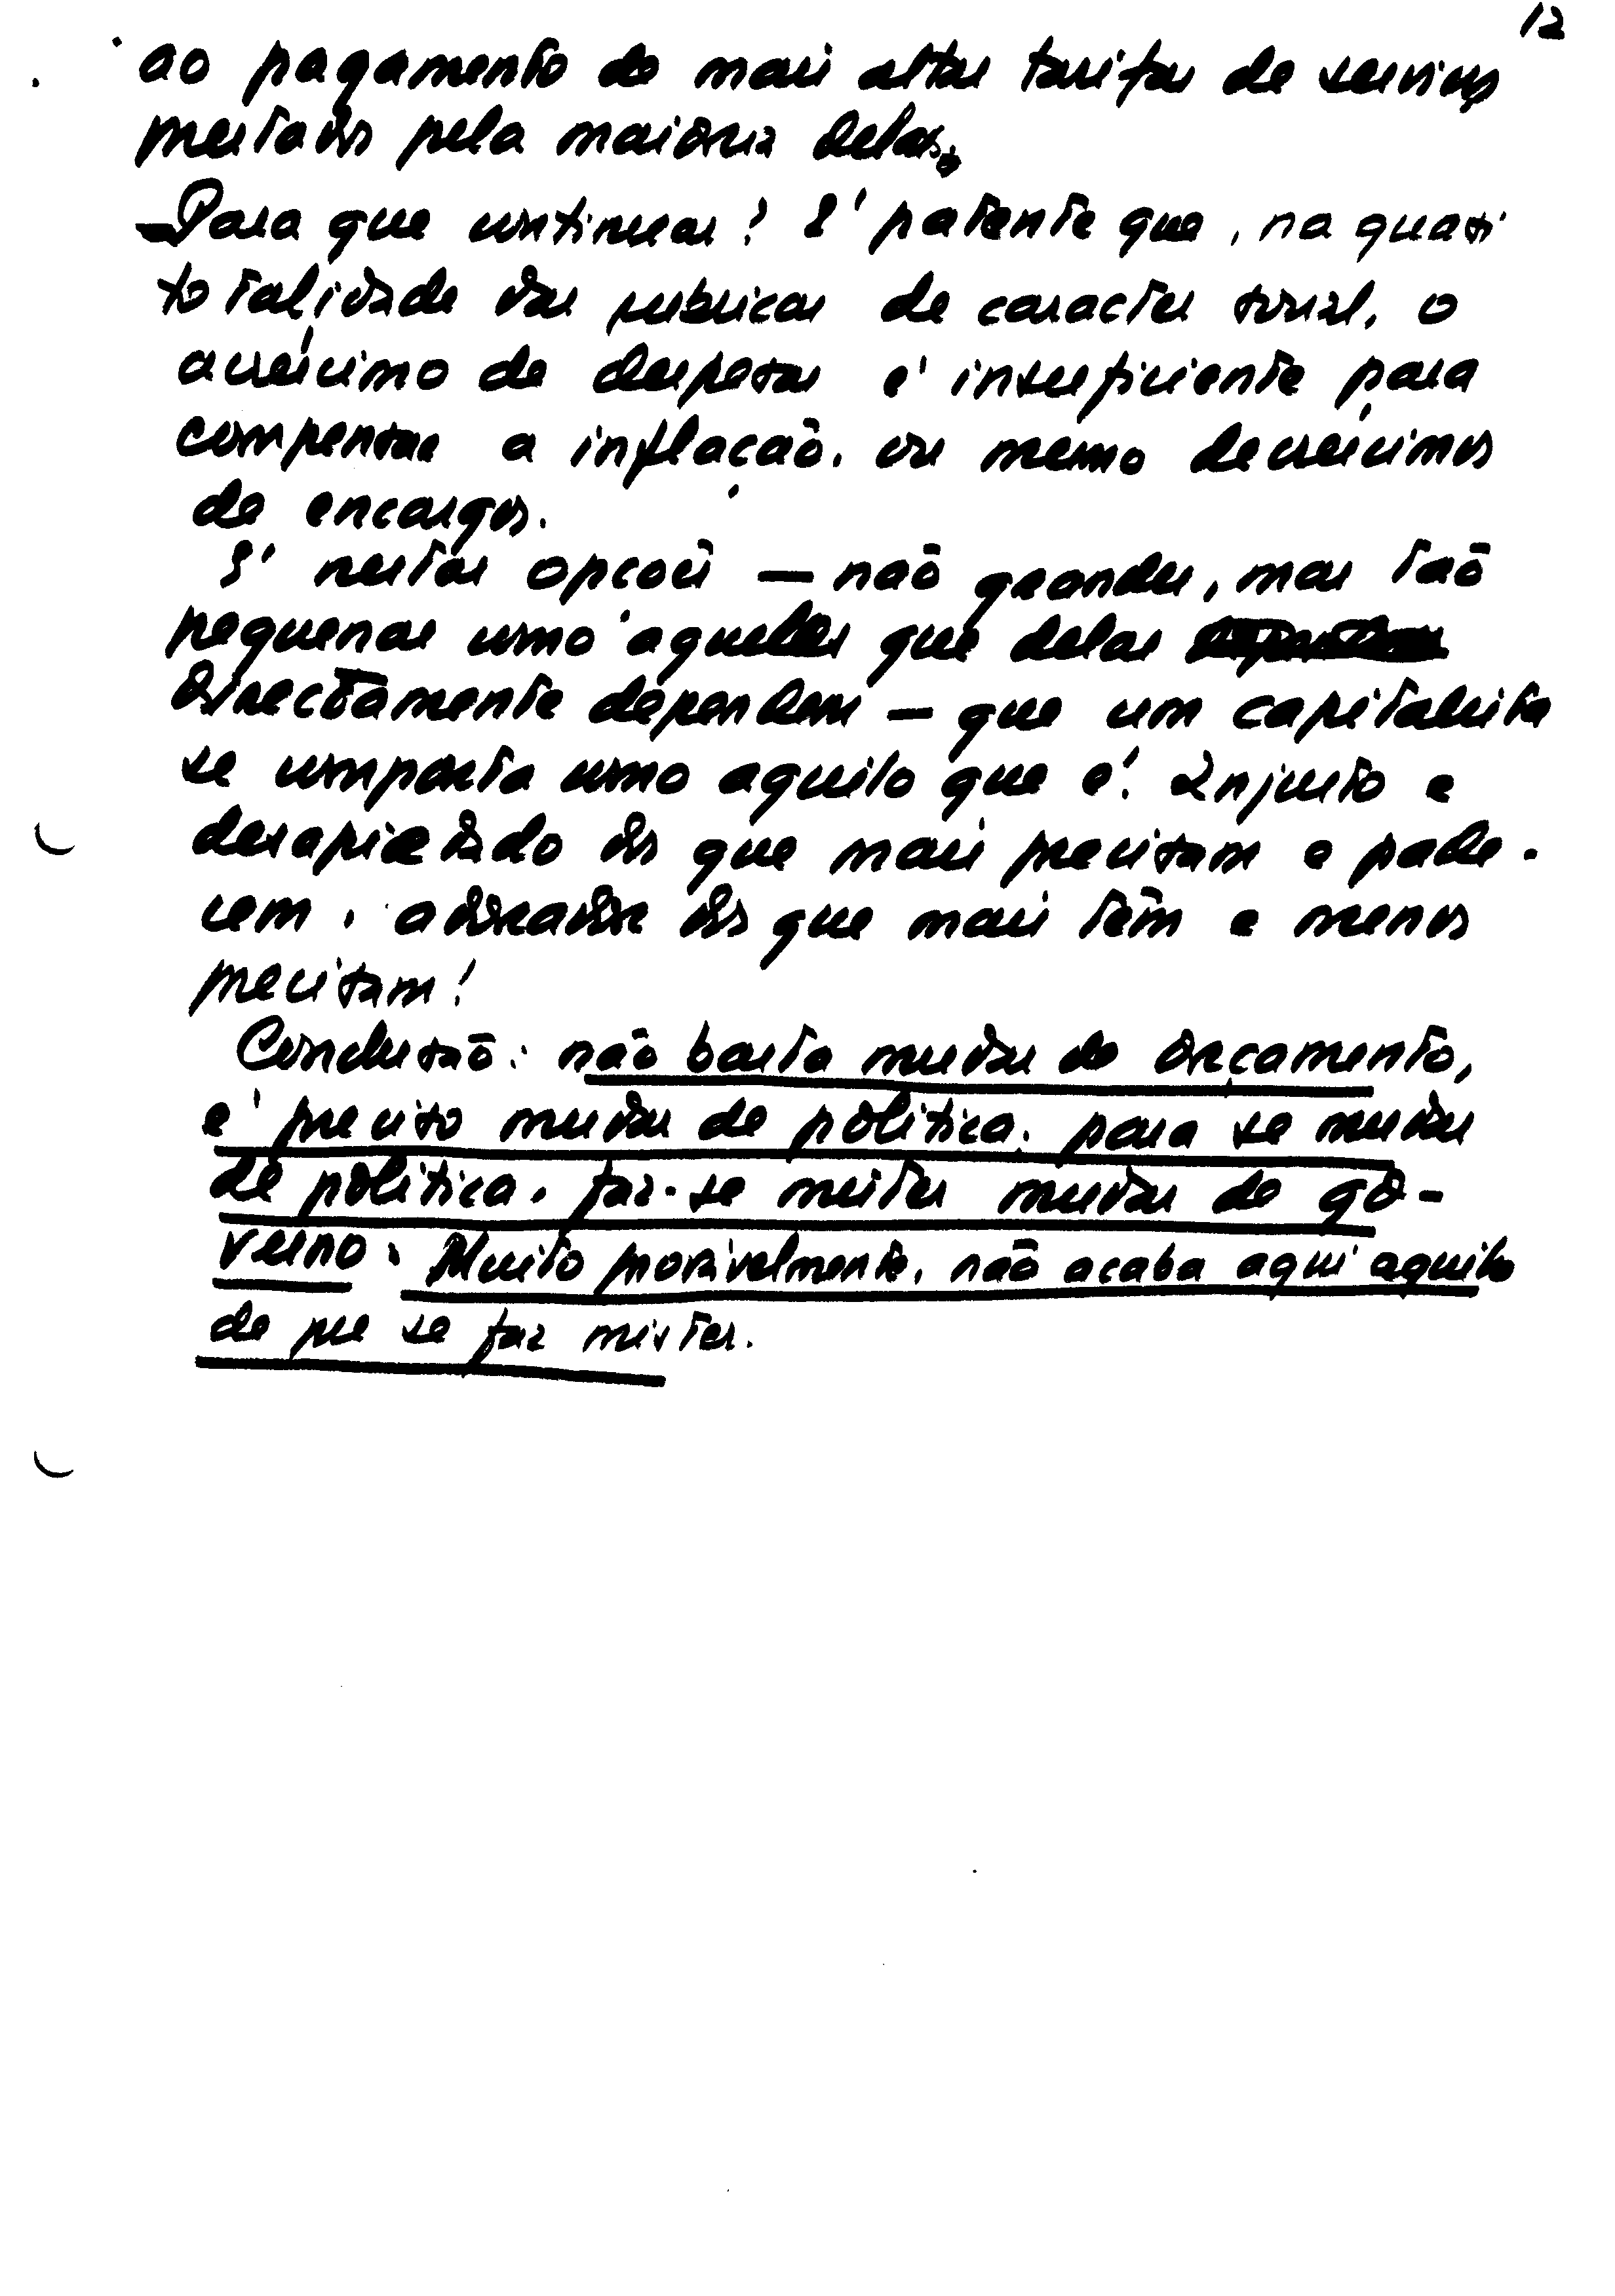 12
ao pagamento de mais altas tarifas de serviços
prestados pela maioria delas.
— Para que continuar? É patente que, na quasi
totalidade das rubricas de caracter social, o
acréscimo de despesas é insuficiente para
compensar a inflação, ou mesmo decréscimos
de encargos.
É nestas opções — não grandes, mas tão
pequenas como aqueles que delas
directamente dependem — que um capitalista
se comporta como aquilo que é: Injusto e
desapiedado dos que mais precisam e pade-
cem, adorador dos que mais têm e menos
precisam!
Conclusão: não basta mudar de orçamento,
é preciso mudar de política. para se mudar
de política, faz-se mister mudar de go-
verno. Muito provàvelmente, não acaba aqui aquilo
de que se faz mister.